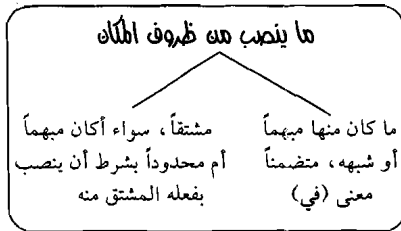 ما ينصب من ظروف المكان
ما كان منها مبهماً
أو شبهه، متضمناً
معنى (في)
مشتقاً، سواء أكان مبهماً
أم محدوداً بشرط أن ينصب
بفعله المشتق منه